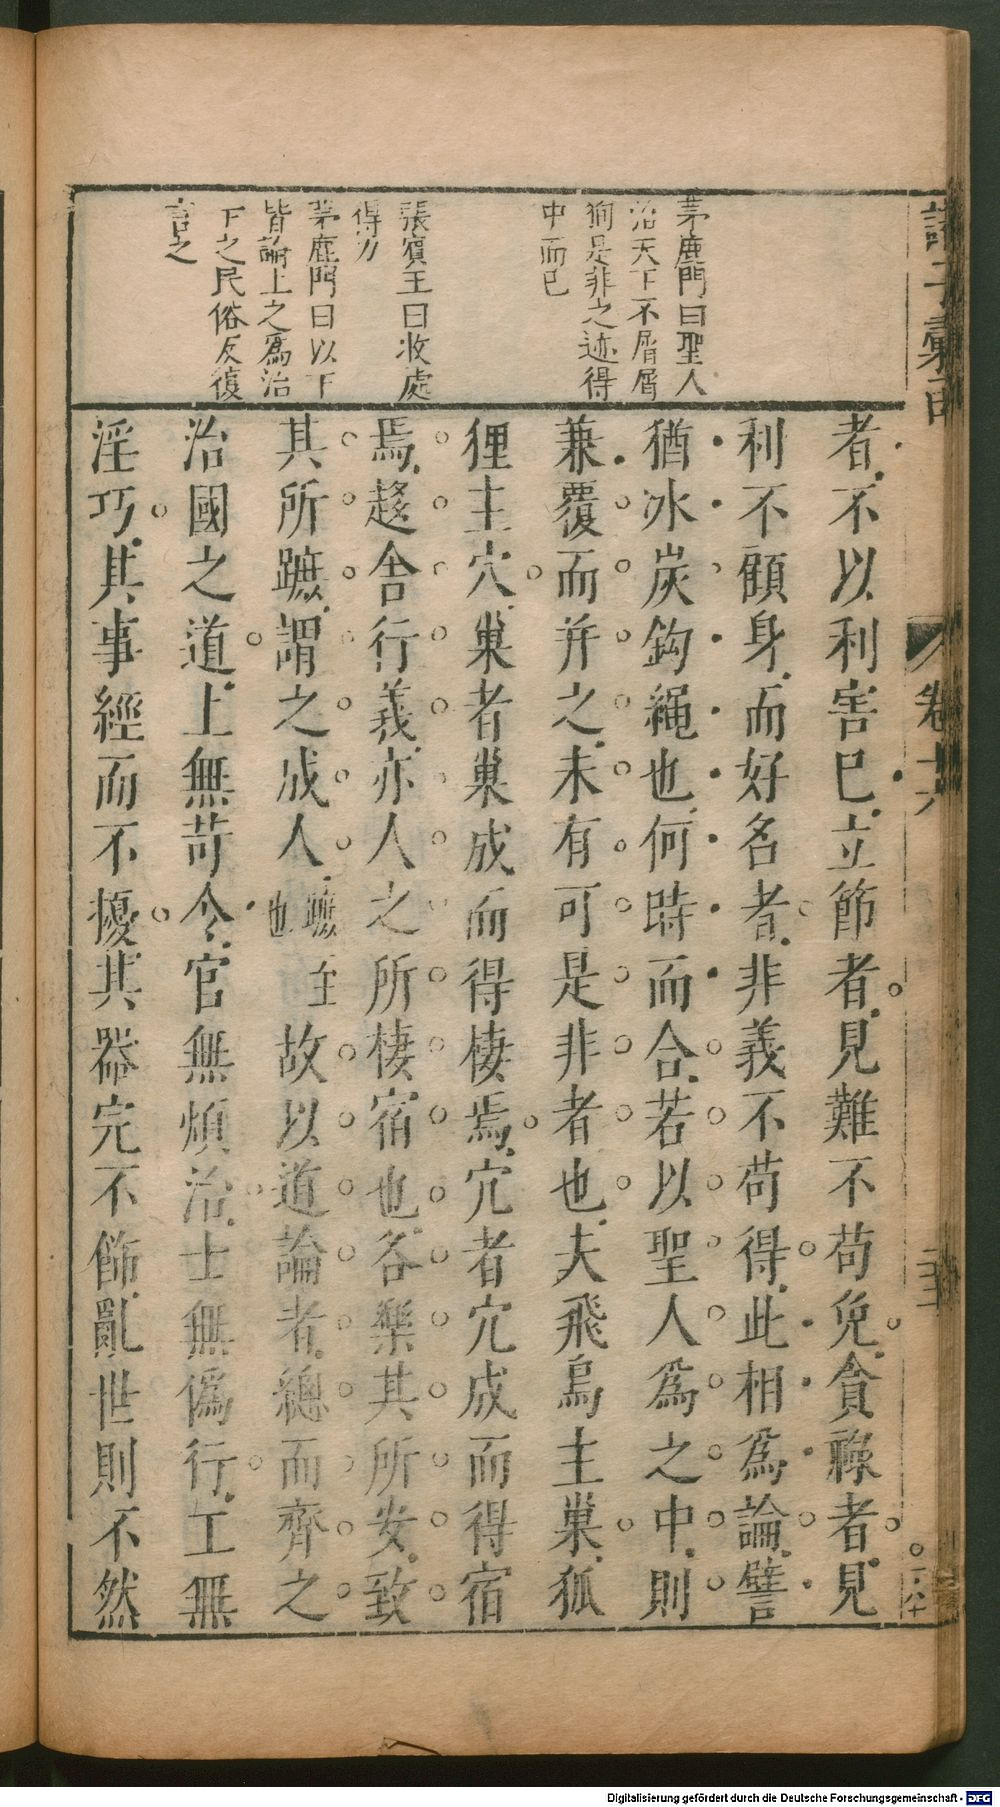 茅鹿門曰聖人
治天下不屑屑
狥是非之迹得
中而已
張賓王曰收處
得力
茅鹿門曰以下
皆論上之爲治
下之民俗反復
言之
者不以利害已立節者見難不苟免貪祿者見
利不顧身而好名者非義不苟得此相爲論譬
猶冰炭鈎繩也何時而合若以聖人爲之中則
兼覆而并之未有可是非者也夫飛鳥主巢狐
狸主穴巢者巢成而得棲焉穴者穴成而得宿
焉趍舍行義亦人之所棲宿也各樂其所安致
其所蹠謂之成人蹠至也故以道論者總而齊之
治國之道上無苛令官無煩治士無僞行工無
淫巧其事經而不擾其器完不飾亂世則不然
卷十六
Digitalisierung gefördert durch die Deutsche Forschungsgemeinschaft - DFG